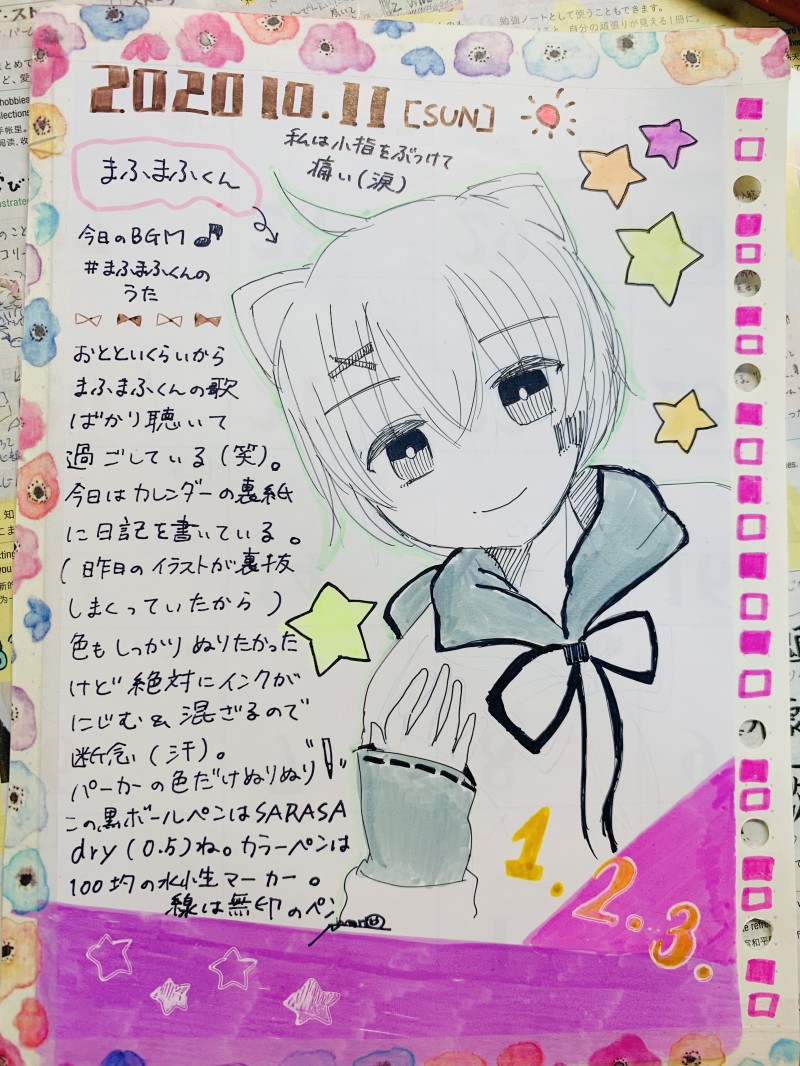 2020 10.11 [SUN]
私は小指をぶつけて
痛い(涙)
まふまふくん
今日のBGM♪
#まふまふくんの
うた
おとといくらいから
まふまふくんの歌
ばかり聴いて
過ごしている(笑)。
今日はカレンダーの裏紙
に日記を書いている。
(昨日のイラストが裏抜
しまくっていたから)
色もしっかりぬりたかった
けど絶対にインクが
にじむ&混ざるので
断念(汗)。
パーカーの色だけぬりぬり
この黒ボールペンはSARASA
dry(0.5)ね。カラーペンは
100均の水性マーカー。
線は無印のペン
1.2.3.